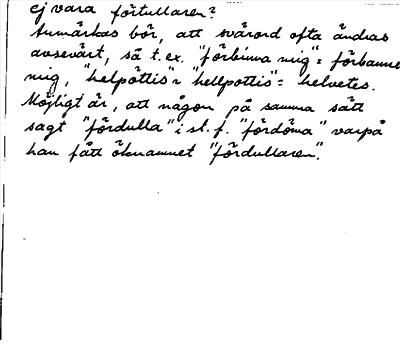 ej vara förtullaren?
Anmärkas bör, att svärord ofta ändras
avsevärt, så t.ex. "förbinna mig" = förbanne
mig, "helpöttis" "hellpottis" = helvetes.
Möjligt är, att någon på samma sätt
sagt "fördulla" i st. f. "fördöma" varpå
han fått öknamnet "fördullaren".